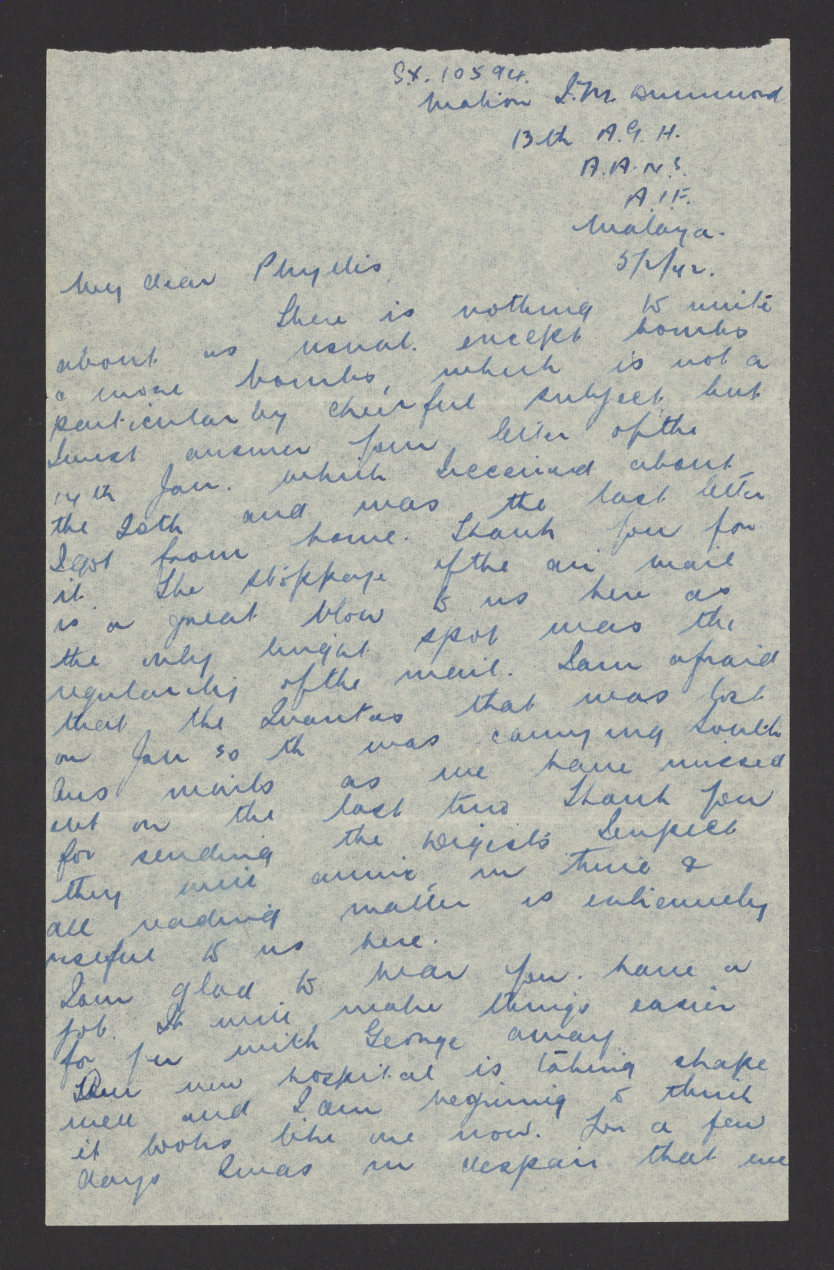 SX. 10594.
Matron I.M. Drummond
13th A.G.H.
A.A.N.S.
A.I.F.
Malaya.
5/2/42.
My dear Phyllis,
There is nothing to write
about as usual. except bombs
& more bombs, which is not a
particularly cheerful subject but
I must answer your letter of the
14th Jan. which I received about
the 20th and was the last letter
I got from home. Thank you for
it. The stoppage of the air mail
is a great blow to us here as
the only bright spot was the
regularity of the mail. I am afraid
that the Quantas that was lost
on Jan 30th was carrying South
Aus mails as we have missed
out on the last two Thank you
for sending the Digests I expect
they will arrive in time &
all reading matter is extremely
useful to us here.
I am glad to hear you. have a
job. It will make things easier
for you with George away
Our new hospital is taking shape
well and I am begining to think
it looks like one now. For a few
days I was in despair that we